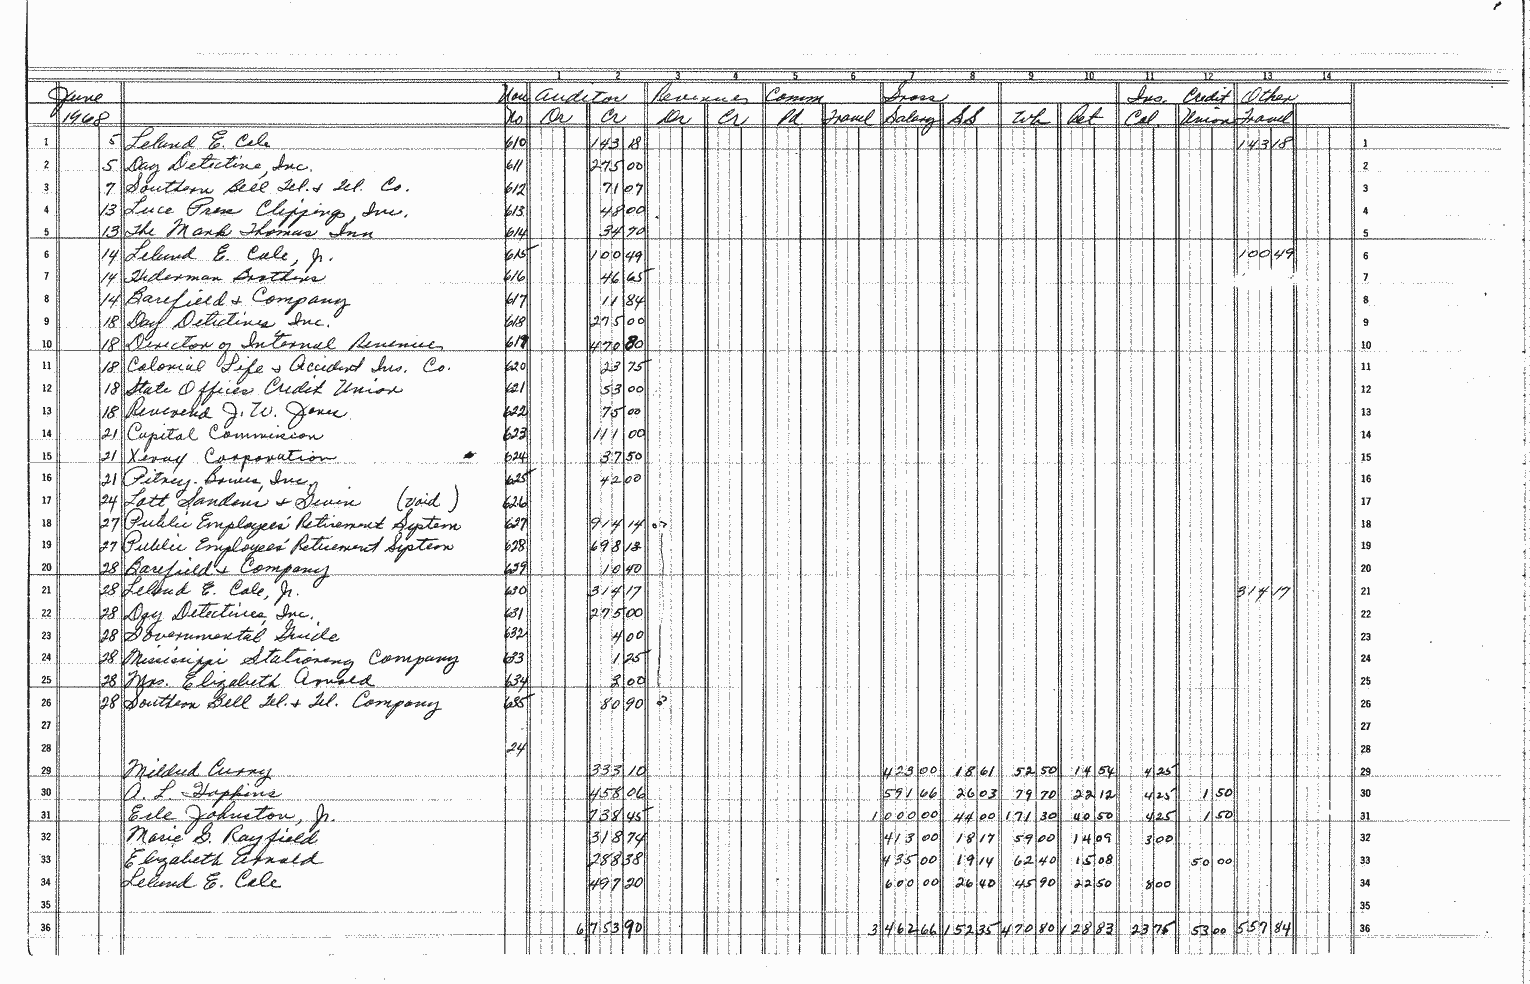 1 2 3 4 5 6 7 8 9 10 11 12 13 14
June Vou Auditor Revenues Comm Gross Ins. Credit Other
1968 No Dr Cr Dr Cr Pd Travel Salary SS Wh Ret Col. Union Travel
1 5 Leland E. Cole 610 143 18 143 18 1
2 5 Day Detective, Inc. 611 275 00 2
3 7 Southern Bell Tel. & Tel. Co. 612 71 07 3
4 13 Luce Press Clippings, Inc. 613 48 00 4
5 13 The Mark Thomas Inn 614 34 70 5
6 14 Leland E. Cole, Jr. 615 100 49 100 49 6
7 14 Hederman Brothers 616 46 65 7
8 14 Barefield & Company 617 11 84 8
9 18 Day Detectives Inc. 618 275 00 9
10 18 Director of Internal Revenue 619 470 80 10
11 18 Colonial Life & Accident Ins. Co. 620 23 75 11
12 18 State Offices Credit Union 621 53 00 12
13 18 Reverend J. W. Jones 622 75 00 13
14 21 Capital Commission 623 111 00 14
15 21 Xerox Corporation 624 37 50 15
16 21 Pitney-Bowes, Inc. 625 42 00 16
17 24 Lott Sanders & Gwin (void) 626 17
18 27 Public Employees' Retirement System 627 914 14 18
19 27 Public Employees' Retirement System 628 698 13 19
20 28 Barefield & Company 629 10 40 20
21 28 Leland E. Cole, Jr. 630 314 17 314 17 21
22 28 Day Detectives, Inc. 631 275 00 22
23 28 Governmental Guide 632 4 00 23
24 28 Mississippi Stationery Company 633 1 25 24
25 28 Mrs. Elizabeth Arnold 634 3 00 25
26 28 Southern Bell Tel. & Tel. Company 635 80 90 26
27 27
28 24 28
29 Mildred Curry 333 10 423 00 18 61 52 50 14 54 4 25 29
30 A. L. Hopkins 458 06 591 66 26 03 79 70 22 12 4 25 1 50 30
31 Erle Johnston, Jr. 738 45 1 000 00 44 00 171 30 40 50 4 25 1 50 31
32 Marie G. Rayfield 318 74 413 00 18 17 59 00 14 09 3 00 32
33 Elizabeth Arnold 288 38 435 00 19 14 62 40 15 08 50 00 33
34 Leland E. Cole 497 20 600 00 26 40 45 90 22 50 8 00 34
35 35
36 6 753 90 3 462 66 152 35 470 80 128 83 23 75 53 00 557 84 36